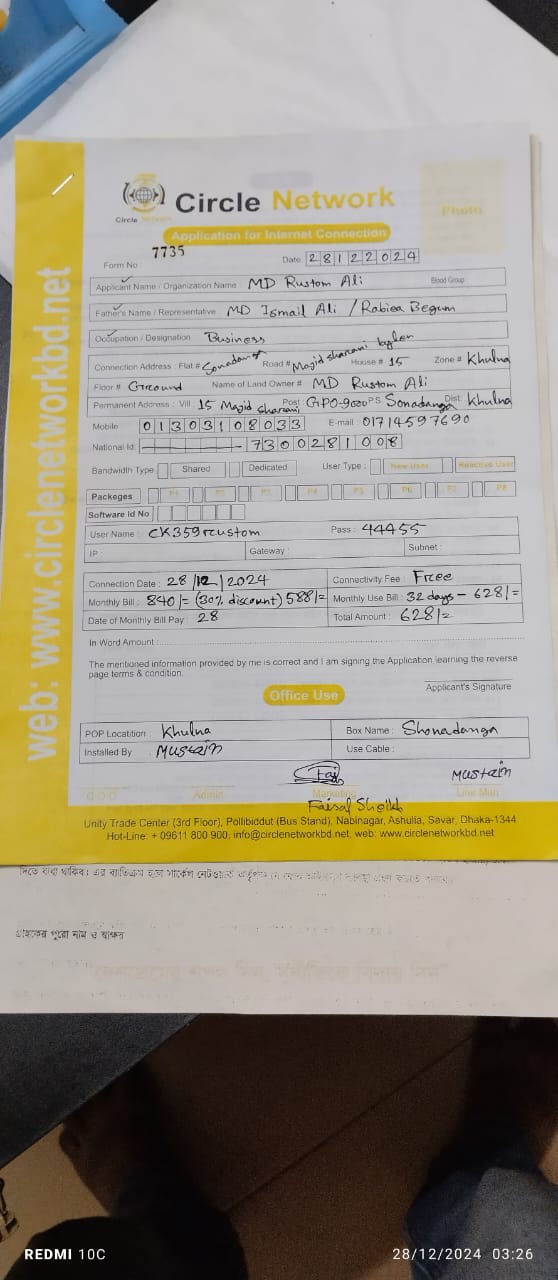 Circle Network
Circle Network
Application for Internet Connection
Photo
Form No 7735
Date 28122024
Applicant Name / Organization Name : MD Rustom Ali Blood Group
Father's Name / Representative : MD Ismail Ali / Rabiea Begum
Occupation / Designation Business
Connection Address : Flat # Sonadanga Road # Majid sharani bylen House # 15 Zone # Khulna
Floor # Ground Name of Land Owner # MD Rustom Ali
Permanent Address : Vill 15 Majid sharani Post GPO-9000 PS Sonadanga Dist: Khulna
Mobile 01303108033 E-mail : 01714597690
National Id: 7300281008
Bandwidth Type Shared Dedicated User Type : New User Reactive User
Packeges P1 P2 P3 P4 P5 P6 P7 P8
Software Id No
User Name : CK359rustom Pass : 44455
IP : Gateway : Subnet :
Connection Date : 28/12/2024 Connectivity Fee : Free
Monthly Bill : 840/= (30% discount) 588/= Monthly Use Bill : 32 days - 628/=
Date of Monthly Bill Pay : 28 Total Amount : 628/=
In Word Amount :
The mentioned information provided by me is correct and I am signing the Application learning the reverse
page terms & condition.
Applicant's Signature
Office Use
POP Locatition : Khulna Box Name : Shonadanga
Installed By Mustain Use Cable :
Mustain
Admin Marketing Line Man
Faisal Sheikh
Unity Trade Center (3rd Floor), Pollibiddut (Bus Stand), Nabinagar, Ashulia, Savar, Dhaka-1344
Hot-Line: + 09611 800 900, info@circlenetworkbd.net, web: www.circlenetworkbd.net
web: www.circlenetworkbd.net
গ্রাহকের পুরো নাম ও স্বাক্ষর
REDMI 10C
28/12/2024 03:26